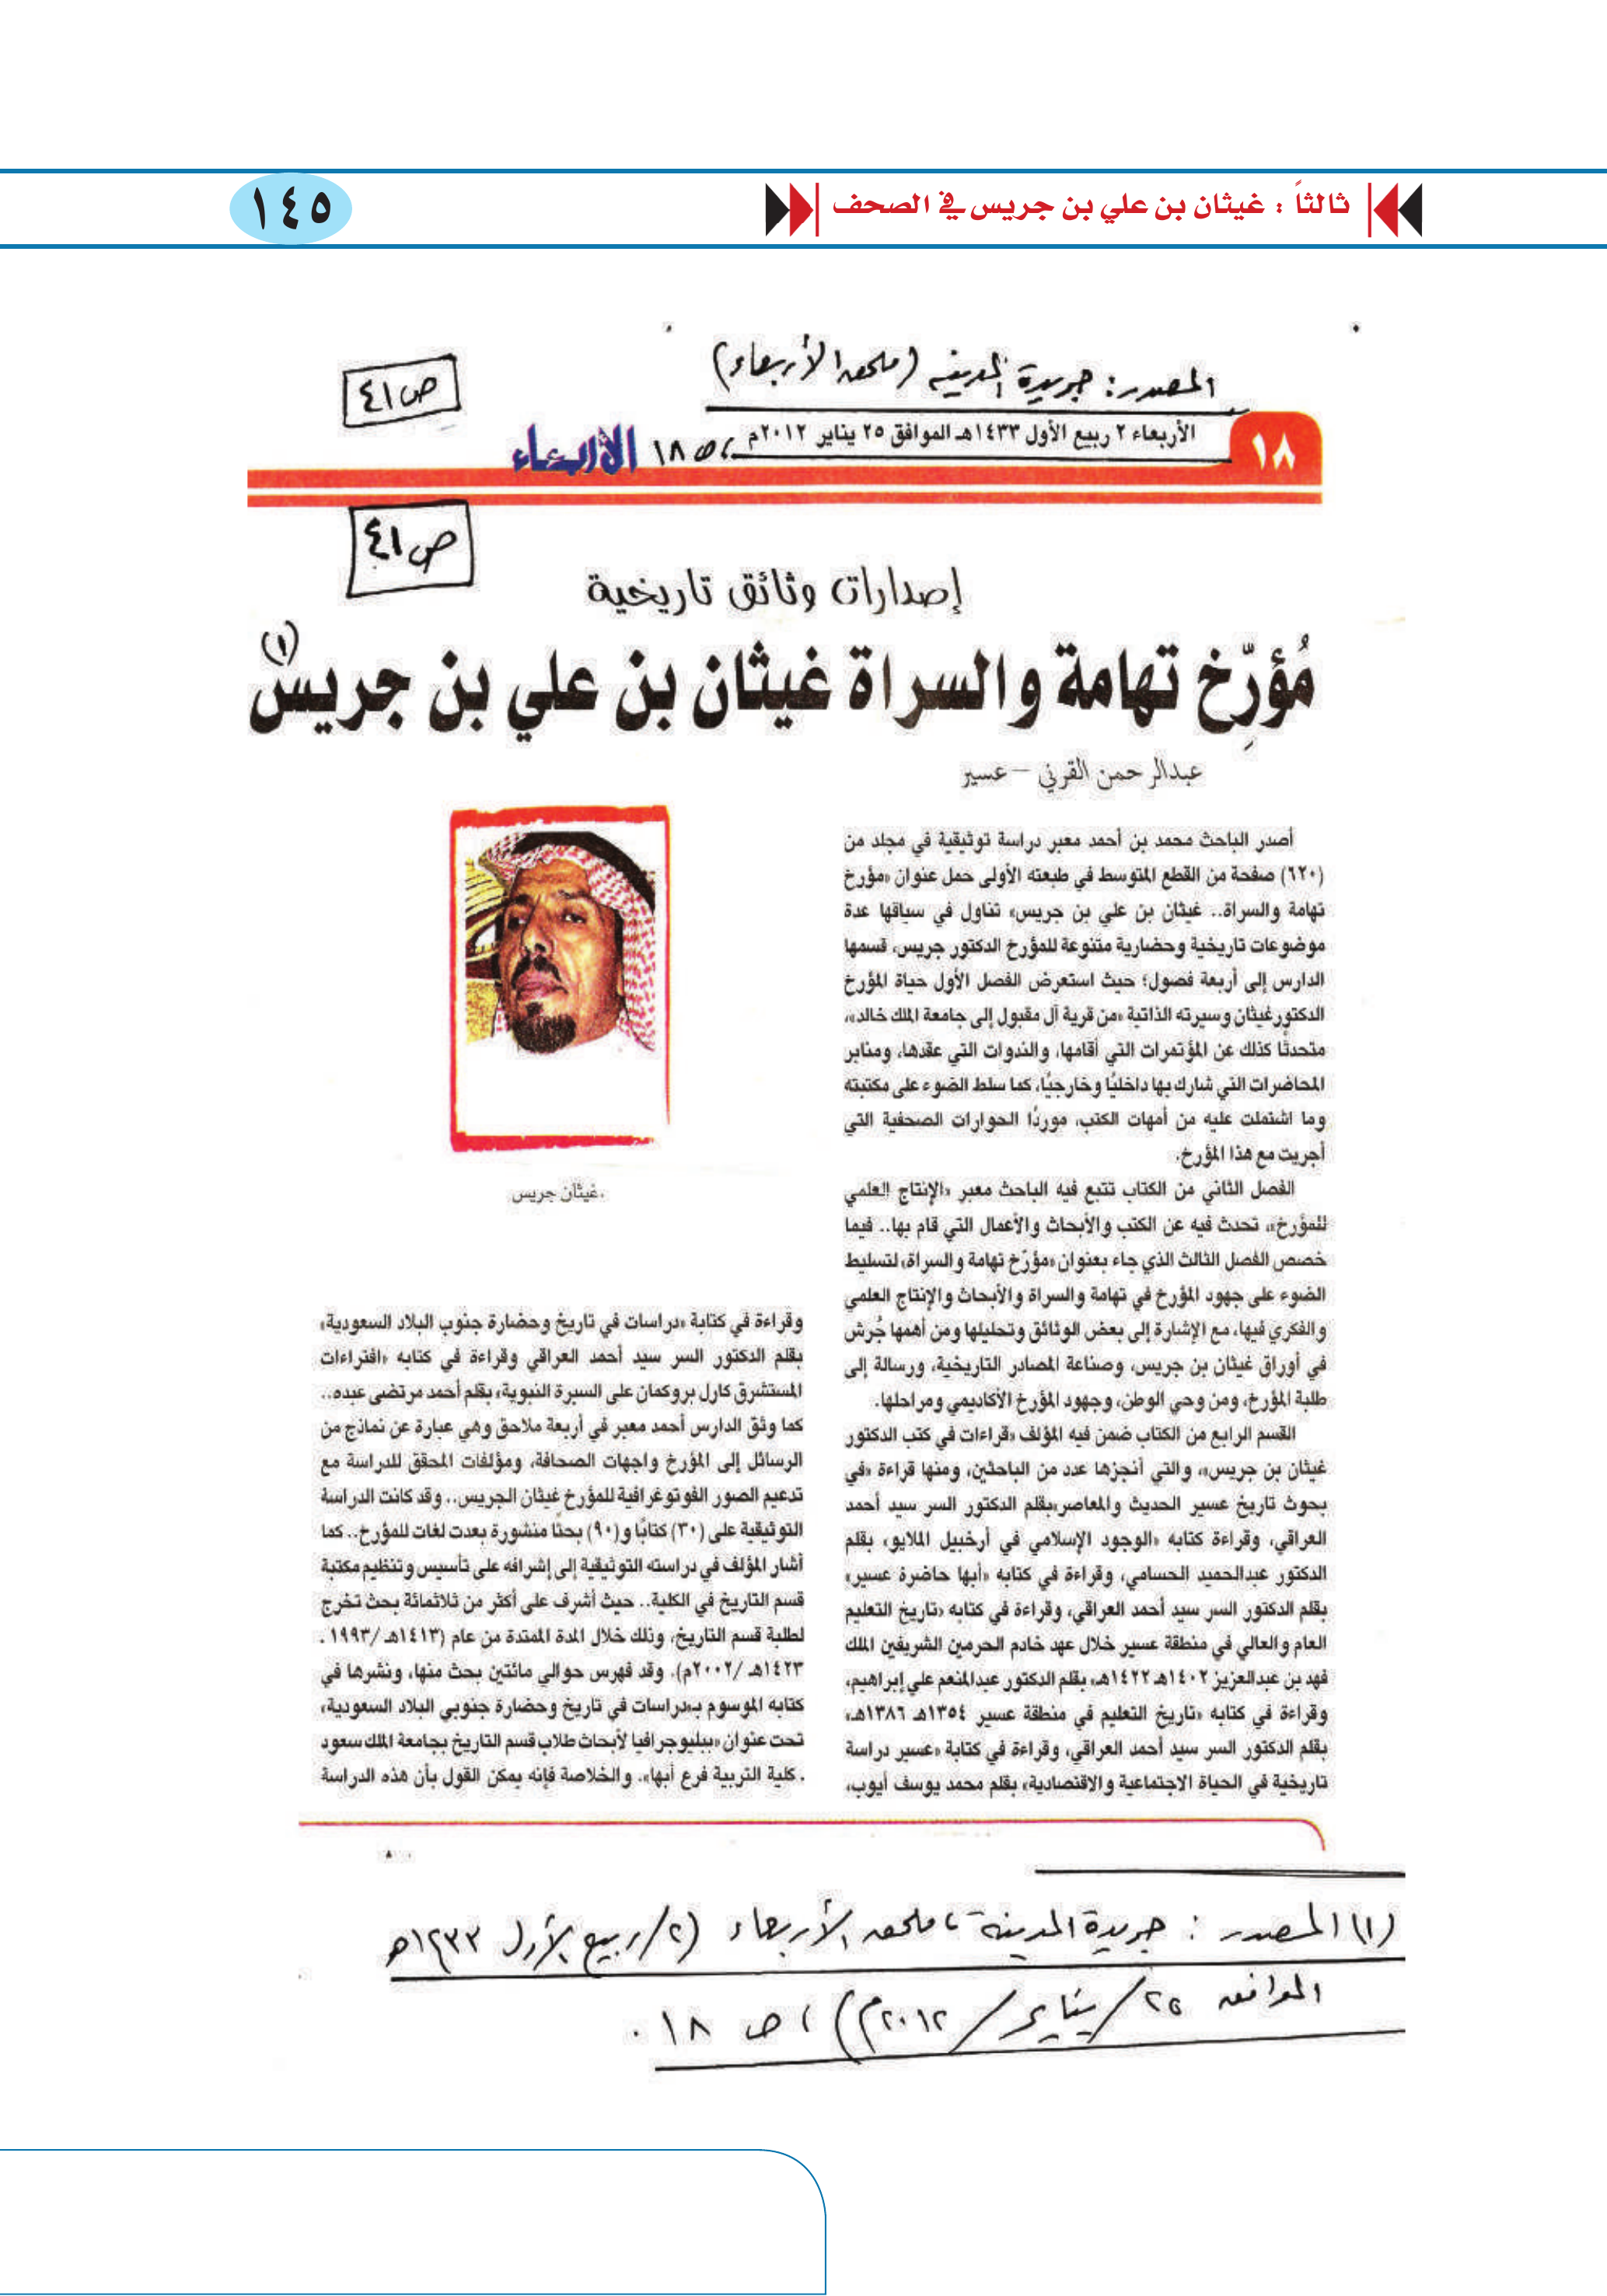 ثالثاً : غيثان بن علي بن جريس في الصحف
١٤٥
المصدر : جريدة المدينة (ملحق الأربعاء)
ص٤١
١٨
الأربعاء ٢ ربيع الأول ١٤٣٣هـ الموافق ٢٥ يناير ٢٠١٢م، ص ١٨
الأربعاء
ص٤١
إصدارات وثائق تاريخية
مُؤرِّخ تهامة والسراة غيثان بن علي بن جريس (١)
عبدالرحمن القرني – عسير
أصدر الباحث محمد بن أحمد معبر دراسة توثيقية في مجلد من
(٦٢٠) صفحة من القطع المتوسط في طبعته الأولى حمل عنوان «مؤرخ
تهامة والسراة.. غيثان بن علي بن جريس» تناول في سياقها عدة
موضوعات تاريخية وحضارية متنوعة للمؤرخ الدكتور جريس، قسمها
الدارس إلى أربعة فصول؛ حيث استعرض الفصل الأول حياة المؤرخ
الدكتورغيثان وسيرته الذاتية «من قرية آل مقبول إلى جامعة الملك خالد»،
متحدثًا كذلك عن المؤتمرات التي أقامها، والندوات التي عقدها، ومنابر
المحاضرات التي شارك بها داخليًا وخارجيًا، كما سلط الضوء على مكتبته
وما اشتملت عليه من أمهات الكتب، موردًا الحوارات الصحفية التي
أجريت مع هذا المؤرخ.
الفصل الثاني من الكتاب تتبع فيه الباحث معبر «الإنتاج العلمي
للمؤرخ»، تحدث فيه عن الكتب والأبحاث والأعمال التي قام بها.. فيما
خصص الفصل الثالث الذي جاء بعنوان «مؤرّخ تهامة والسراة» لتسليط
الضوء على جهود المؤرخ في تهامة والسراة والأبحاث والإنتاج العلمي
والفكري فيها، مع الإشارة إلى بعض الوثائق وتحليلها ومن أهمها جُرش
في أوراق غيثان بن جريس، وصناعة المصادر التاريخية، ورسالة إلى
طلبة المؤرخ، ومن وحي الوطن، وجهود المؤرخ الأكاديمي ومراحلها.
القسم الرابع من الكتاب ضمن فيه المؤلف «قراءات في كتب الدكتور
غيثان بن جريس»، والتي أنجزها عدد من الباحثين، ومنها قراءة «في
بحوث تاريخ عسير الحديث والمعاصر»بقلم الدكتور السر سيد أحمد
العراقي، وقراءة كتابه «الوجود الإسلامي في أرخبيل الملايو» بقلم
الدكتور عبدالحميد الحسامي، وقراءة في كتابه «أبها حاضرة عسير»
بقلم الدكتور السر سيد أحمد العراقي، وقراءة في كتابه «تاريخ التعليم
العام والعالي في منطقة عسير خلال عهد خادم الحرمين الشريفين الملك
فهد بن عبدالعزيز ١٤٠٢هـ ١٤٢٢هـ» بقلم الدكتور عبدالمنعم علي إبراهيم،
وقراءة في كتابه «تاريخ التعليم في منطقة عسير ١٣٥٤هـ ١٣٨٦هـ»
بقلم الدكتور السر سيد أحمد العراقي، وقراءة في كتابة «عسير دراسة
تاريخية في الحياة الاجتماعية والاقتصادية» بقلم محمد يوسف أيوب،
.غيثان جريس
وقراءة في كتابة «دراسات في تاريخ وحضارة جنوب البلاد السعودية»
بقلم الدكتور السر سيد أحمد العراقي وقراءة في كتابه «افتراءات
المستشرق كارل بروكمان على السيرة النبوية» بقلم أحمد مرتضى عبده..
كما وثق الدارس أحمد معبر في أربعة ملاحق وهي عبارة عن نماذج من
الرسائل إلى المؤرخ واجهات الصحافة، ومؤلفات المحقق للدراسة مع
تدعيم الصور الفوتوغرافية للمؤرخ غيثان الجريس.. وقد كانت الدراسة
التوثيقية على (٣٠) كتابًا و(٩٠) بحثًا منشورة بعدت لغات للمؤرخ.. كما
أشار المؤلف في دراسته التوثيقية إلى إشرافه على تأسيس وتنظيم مكتبة
قسم التاريخ في الكلية.. حيث أشرف على أكثر من ثلاثمائة بحث تخرج
لطلبة قسم التاريخ، وذلك خلال المدة الممتدة من عام (١٤١٣هـ/١٩٩٣ .
١٤٢٣هـ /٢٠٠٢م). وقد فهرس حوالي مائتين بحث منها، ونشرها في
كتابه الموسوم بـ«دراسات في تاريخ وحضارة جنوبي البلاد السعودية»
تحت عنوان «ببليوجرافيا لأبحاث طلاب قسم التاريخ بجامعة الملك سعود
. كلية التربية فرع أبها». والخلاصة فإنه يمكن القول بأن هذه الدراسة
(١) المصدر : جريدة المدينة ، ملحق الأربعاء (٢/ربيع الأول ١٤٣٣هـ
الموافق ٢٥/يناير/٢٠١٢م) ، ص ١٨ .